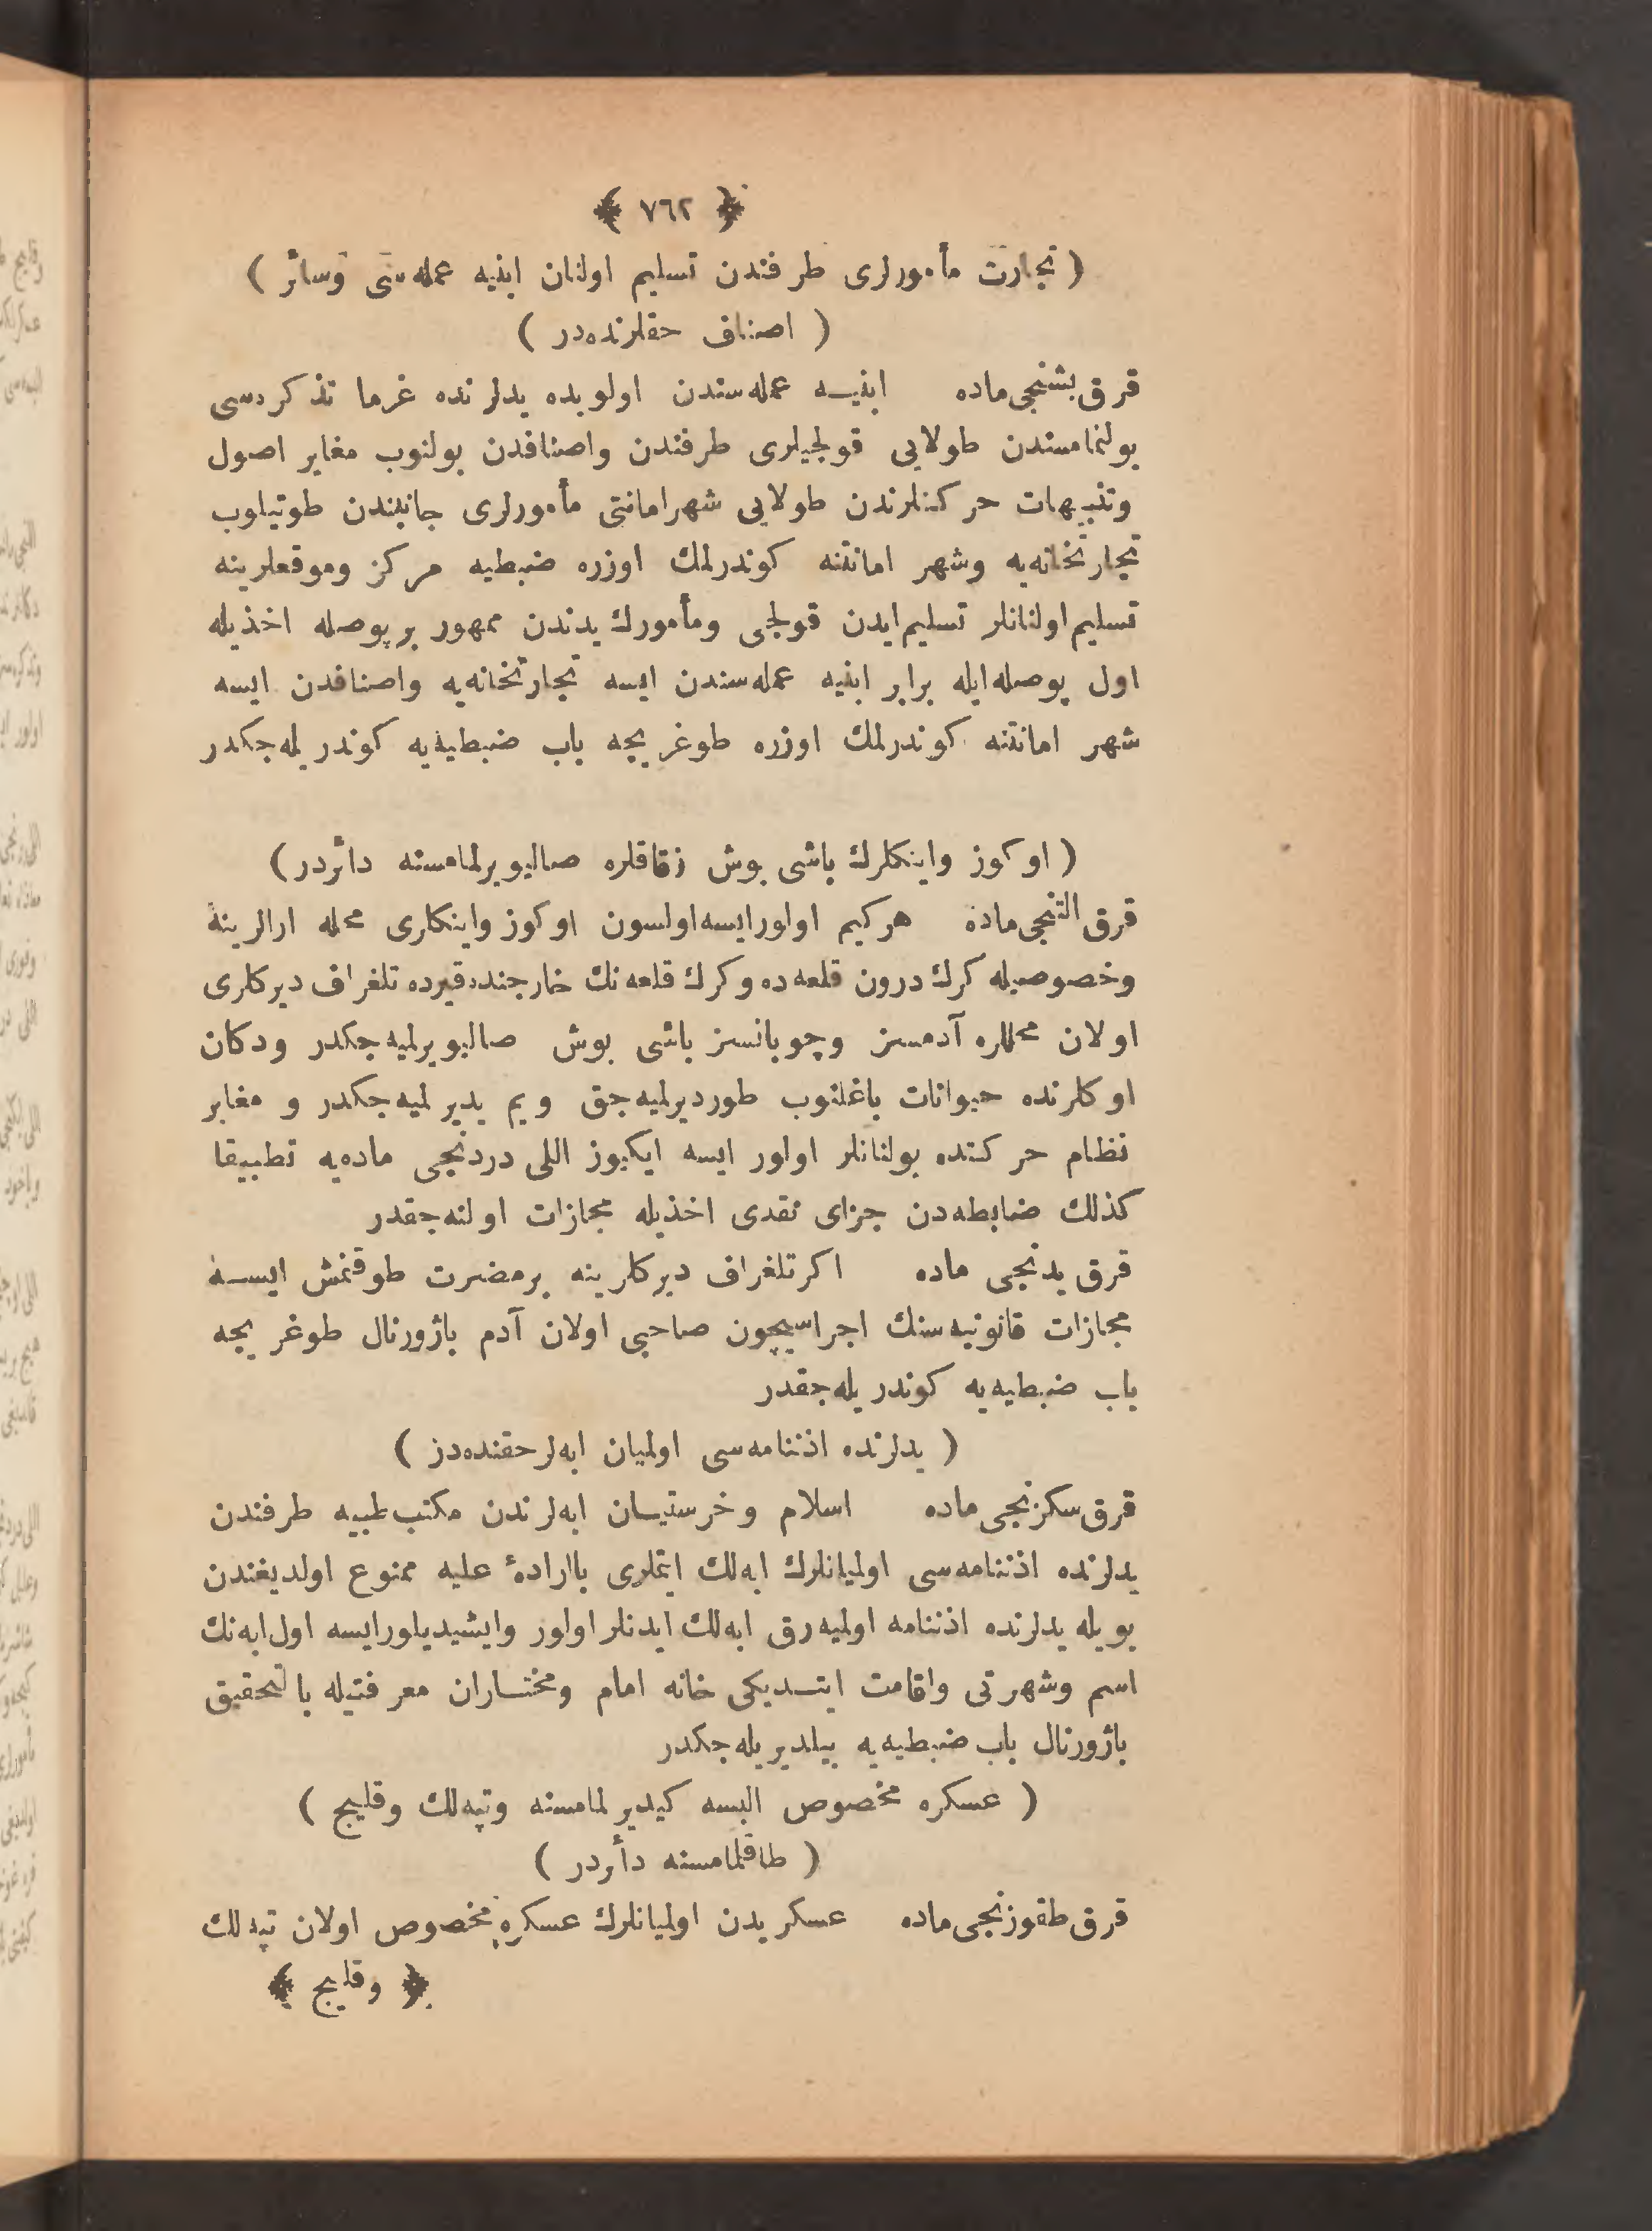 ﴿ ٧٦٢ ﴾
( تجارت مأمورلری طرفندن تسلیم اولنان ابنیه عمله‌سی وسائر )
( اصناف حقلرنده‌در )
قرق بشنجی ماده ابنیه عمله‌سندن اولوبده یدلرنده غرما تذکره‌سی
بولنمامسندن طولایی قولجیلری طرفندن واصنافدن بولنوب مغایر اصول
وتنبیهات حرکتلرندن طولایی شهرامانتی مأمورلری جانبندن طوتیلوب
تجارتخانه‌یه وشهر امانتنه کوندرلمك اوزره ضبطیه مرکز وموقعلرینه
تسلیم اولنانلر تسلیم ایدن قولجی ومأمورك یدندن ممهور بر پوصله اخذیله
اول پوصله ایله برابر ابنیه عمله‌سندن ایسه تجارتخانه‌یه واصنافدن ایسه
شهر امانتنه کوندرلمك اوزره طوغریجه باب ضبطیه‌یه کوندریله‌جکدر
( اوکوز واینکلرك باشی بوش زقاقلره صالیویرلمامسنه دائردر )
قرق التنجی ماده هرکیم اولورایسه اولسون اوکوز واینکلری محله ارالرینه
وخصوصیله کرك درون قلعه‌ده وکرك قلعه‌نك خارجنده قیرده تلغراف دیرکلری
اولان محللره آدمسز وچوبانسز باشی بوش صالیویرلمیه‌جکدر ودکان
اوکلرنده حیوانات باغلنوب طوردیرلمیه‌جق ویم یدیرلمیه‌جکدر و مغایر
نظام حرکتده بولنانلر اولور ایسه ایکیوز اللی دردنجی ماده‌یه تطبیقا
کذلك ضابطه‌دن جزای نقدی اخذیله مجازات اولنه‌جقدر
قرق یدنجی ماده اکر تلغراف دیرکلرینه برمضرت طوقنمش ایسه
مجازات قانونیه‌سنك اجراسیچون صاحبی اولان آدم باژورنال طوغریجه
باب ضبطیه‌یه کوندریله‌جقدر
( یدلرنده اذننامه‌سی اولمیان ابه‌لر حقنده‌در )
قرق سکزنجی ماده اسلام وخرستیان ابه‌لرندن مکتب طبیه طرفندن
یدلرنده اذننامه‌سی اولمیانلرك ابه‌لك ایتملری بااراده‌ٔ علیه ممنوع اولدیغندن
بویله یدلرنده اذننامه اولمیه‌رق ابه‌لك ایدنلر اولور وایشیدیلورایسه اول ابه‌نك
اسم وشهرتی واقامت ایتدیکی خانه امام ومختاران معرفتیله بالتحقیق
باژورنال باب ضبطیه‌یه بیلدیریله‌جکدر
( عسکره مخصوص البسه کیدیرلمامسنه وتپه‌لك وقلیج )
( طاقلمامسنه دائردر )
قرق طقوزنجی ماده عسکریدن اولمیانلرك عسکره مخصوص اولان تپه‌لك
﴿ وقلیج ﴾